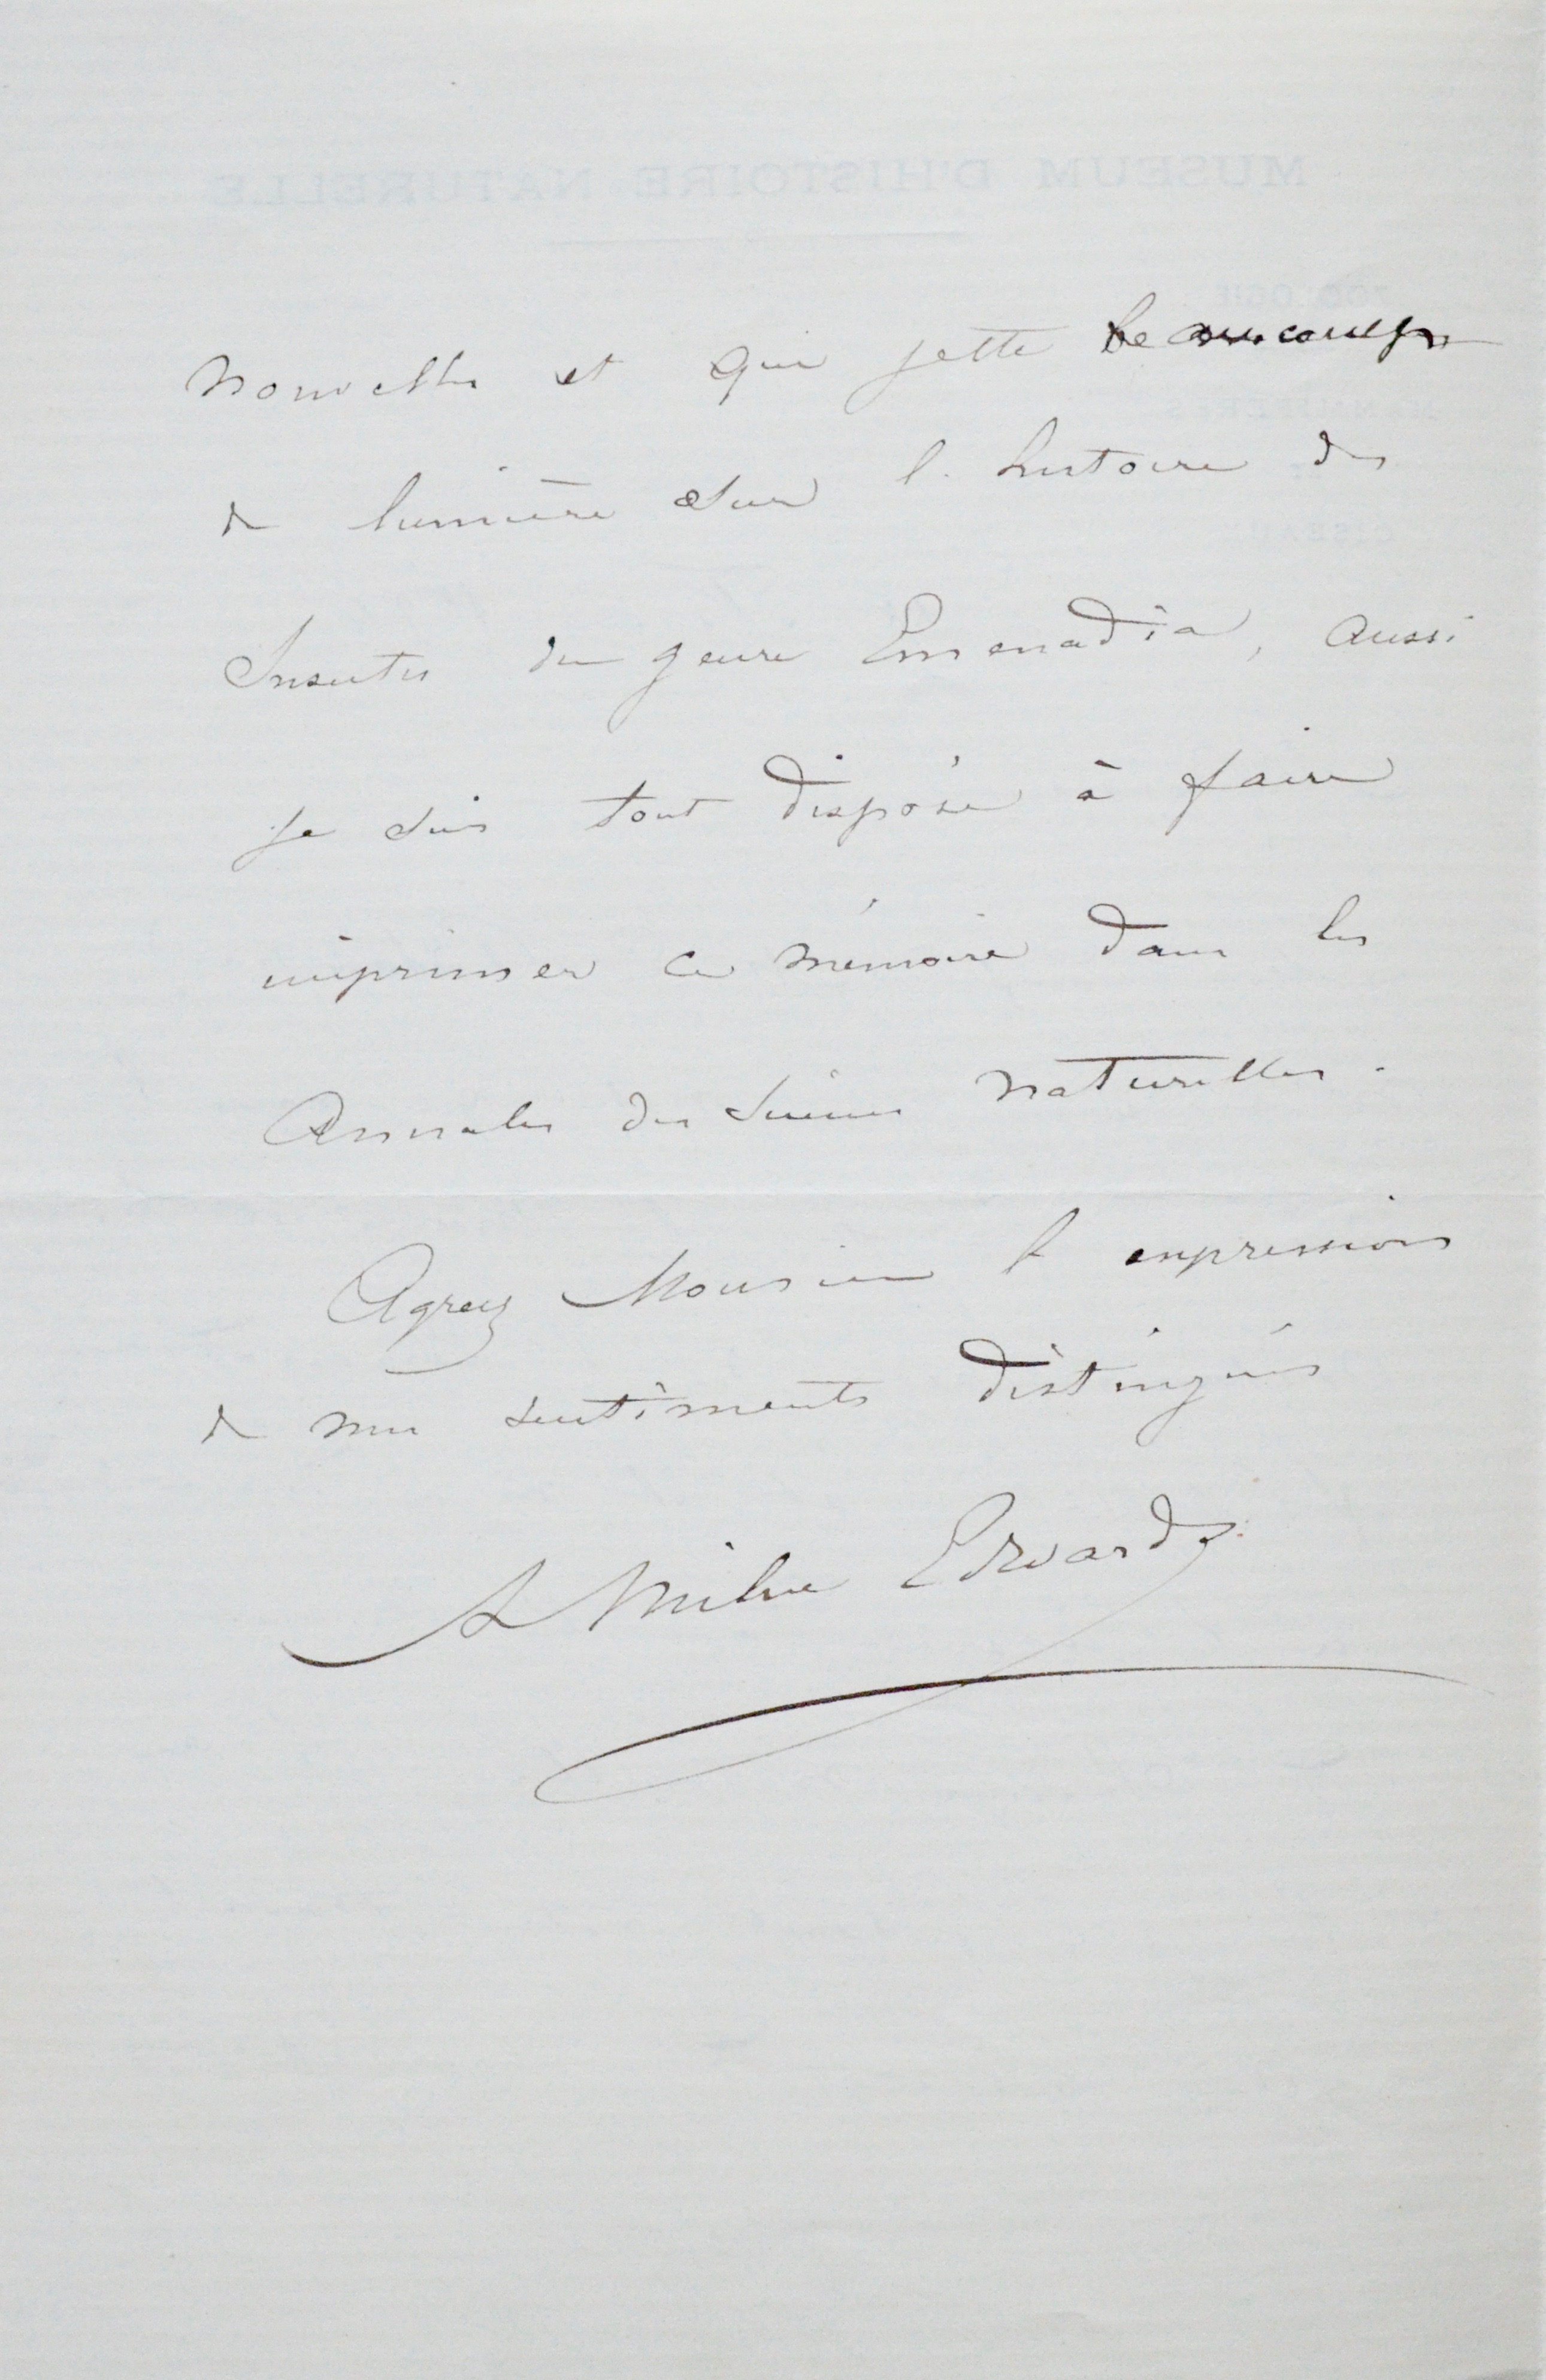 MUSEUM D'HISTOIRE NATURELLE
ZOOLOGIE
MAMMIFÈRES
OISEAUX
nouvelles et qui jette beaucoup
de lumière sur l'histoire des
Insectes du genre Emenadia, aussi
je suis tout disposé à faire
imprimer ce mémoire dans les
Annales des Sciences naturelles.
Agréez Monsieur l'expression
de mes sentiments distingués
A Milne Edwards